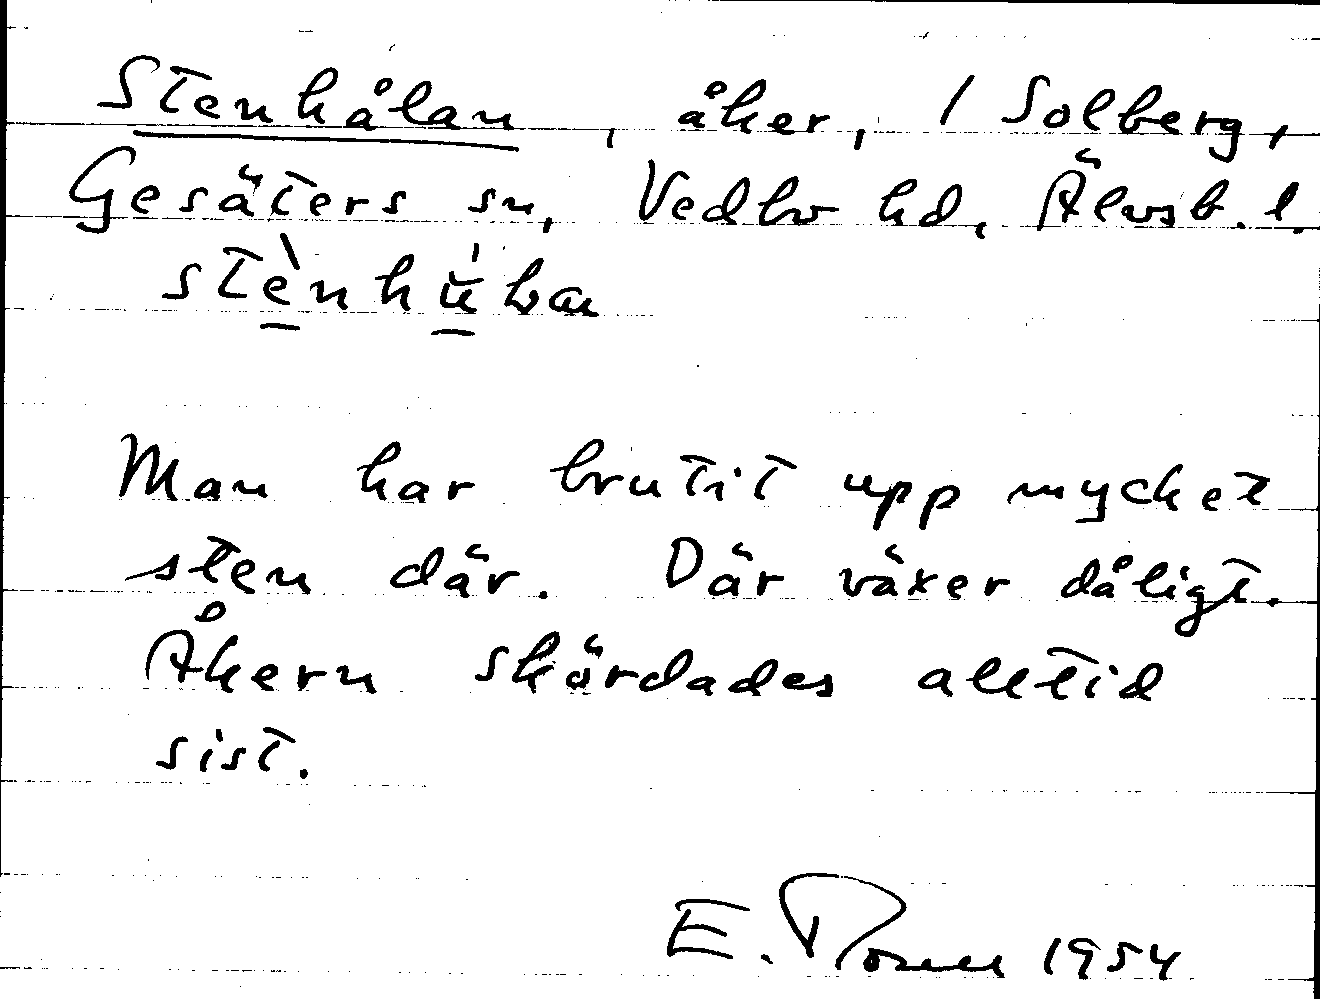 Stenhålan, åker, / Solberg,
Gesäters sn, Vedbo hd, Älvsb. l.
Man har brutit upp mycket
sten där. Där växer dåligt.
Åkern skördades alltid
sist.
E. 1954